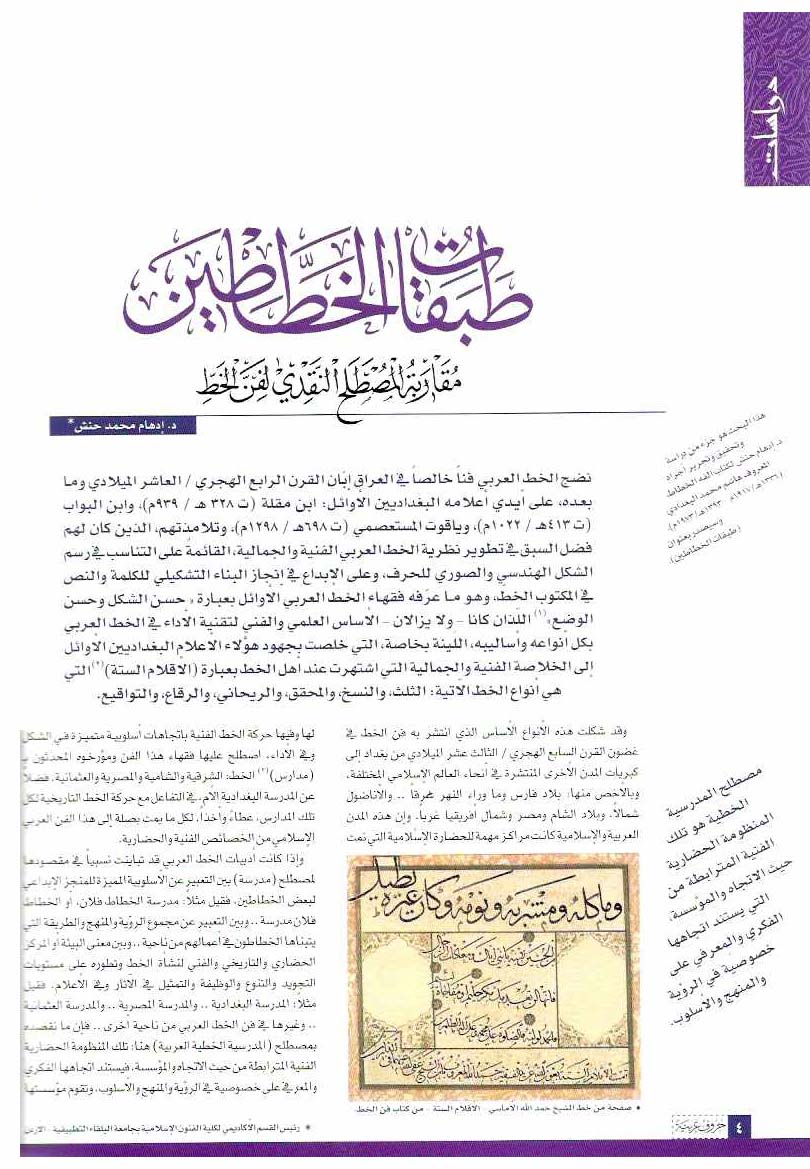 دراسات
طبقات الخطاطين
مُقَارَبَةُ المُصْطَلَحِ النَّقْدِيِّ لِفَنِّ الخَطِّ
د. إدهام محمد حنش*
هذا البحث هو جزء من دراسة
وتحقيق وتحرير أجراه
د.إدهام حنش لكتاب الفه الخطاط
المعروف هاشم محمد البغدادي
(١٣٣٦هـ/١٩١٧م - ١٣٩٣هـ/١٩٧٣م)،
وسيصدر بعنوان
(طبقات الخطاطين).
نضج الخط العربي فناً خالصاً في العراق إبّان القرن الرابع الهجري / العاشر الميلادي وما
بعده، على أيدي أعلامه البغداديين الأوائل: ابن مقلة (ت ٣٢٨ هـ / ٩٣٩م)، وابن البواب
(ت ٤١٣هـ / ١٠٢٢م)، وياقوت المستعصمي (ت ٦٩٨هـ / ١٢٩٨م)، وتلامذتهم، الذين كان لهم
فضل السبق في تطوير نظرية الخط العربي الفنية والجمالية، القائمة على التناسب في رسم
الشكل الهندسي والصوري للحرف، وعلى الإبداع في إنجاز البناء التشكيلي للكلمة والنص
في المكتوب الخط، وهو ما عرّفه فقهاء الخط العربي الأوائل بعبارة « حسن الشكل وحسن
الوضع»(١) اللذان كانا - ولا يزالان - الأساس العلمي والفني لتقنية الاداء في الخط العربي
بكل انواعه وأساليبه، اللينة بخاصة، التي خلصت بجهود هؤلاء الاعلام البغداديين الأوائل
إلى الخلاصة الفنية والجمالية التي اشتهرت عند اهل الخط بعبارة (الاقلام الستة)(٢) التي
هي أنواع الخط الاتية: الثلث، والنسخ، والمحقق، والريحاني، والرقاع، والتواقيع.
وقد شكلت هذه الأنواع الأساس الذي انتشر به فن الخط في
غضون القرن السابع الهجري / الثالث عشر الميلادي من بغداد إلى
كبريات المدن الاخرى المنتشرة في أنحاء العالم الإسلامي المختلفة،
وبالاخص منها: بلاد فارس وما وراء النهر شرقاً .. والأناضول
شمالاً، وبلاد الشام ومصر وشمال أفريقيا غرباً. وإن هذه المدن
العربية والإسلامية كانت مراكز مهمة للحضارة الإسلامية التي نمت
لها وفيها حركة الخط الفنية باتجاهات أسلوبية متميزة في الشكل
وفي الأداء، اصطلح عليها فقهاء هذا الفن ومؤرخوه المحدثون بـ
(مدارس)(٣) الخط: الشرقية والشامية والمصرية والعثمانية، فضلاً
عن المدرسة البغدادية الأم، في التفاعل مع حركة الخط التاريخية لكل
تلك المدارس، عطاءً وأخذا، لكل ما يمت بصلة إلى هذا الفن العربي
الإسلامي من الخصائص الفنية والحضارية.
وإذا كانت أدبيات الخط العربي قد تباينت نسبياً في مقصودها
لمصطلح (مدرسة) بين التعبير عن الأسلوبية المميزة للمنجز الإبداعي
لبعض الخطاطين، فقيل مثلا: مدرسة الخطاط فلان، او الخطاط
فلان مدرسة .. وبين التعبير عن مجموع الرؤية والمنهج والطريقة التي
يتبناها الخطاطون في اعمالهم من ناحية .. وبين معنى البيئة أو المركز
الحضاري والتاريخي والفني لنشأة الخط وتطوره على مستويات
التجويد والتنوع والوظيفة والتمثيل في الآثار وفي الاعلام. فقيل
مثلاً: المدرسة البغدادية .. والمدرسة المصرية .. والمدرسة العثمانية
.. وغيرها في فن الخط العربي من ناحية أخرى .. فإن ما نقصده
بمصطلح (المدرسية الخطية العربية) هنا: تلك المنظومة الحضارية
الفنية المترابطة من حيث الاتجاه والمؤسسة، فيستند اتجاهها الفكري
والمعرفي على خصوصية في الرؤية والمنهج والأسلوب، وتقوم مؤسستها
مصطلح المدرسية
الخطية هو تلك
المنظومة الحضارية
الفنية المترابطة من
حيث الاتجاه والمؤسسة،
التي يستند اتجاهها
الفكري والمعرفي على
خصوصية في الرؤية
والمنهج والأسلوب.
وماكله ومشربه ونومه وكان غيره يطيل
• صفحة من خط الشيخ حمد الله الاماسي - الاقلام الستة - من كتاب فن الخط
* رئيس القسم الأكاديمي لكلية الفنون الإسلامية بجامعة البلقاء التطبيقية - الاردن
٤ حروف عربية